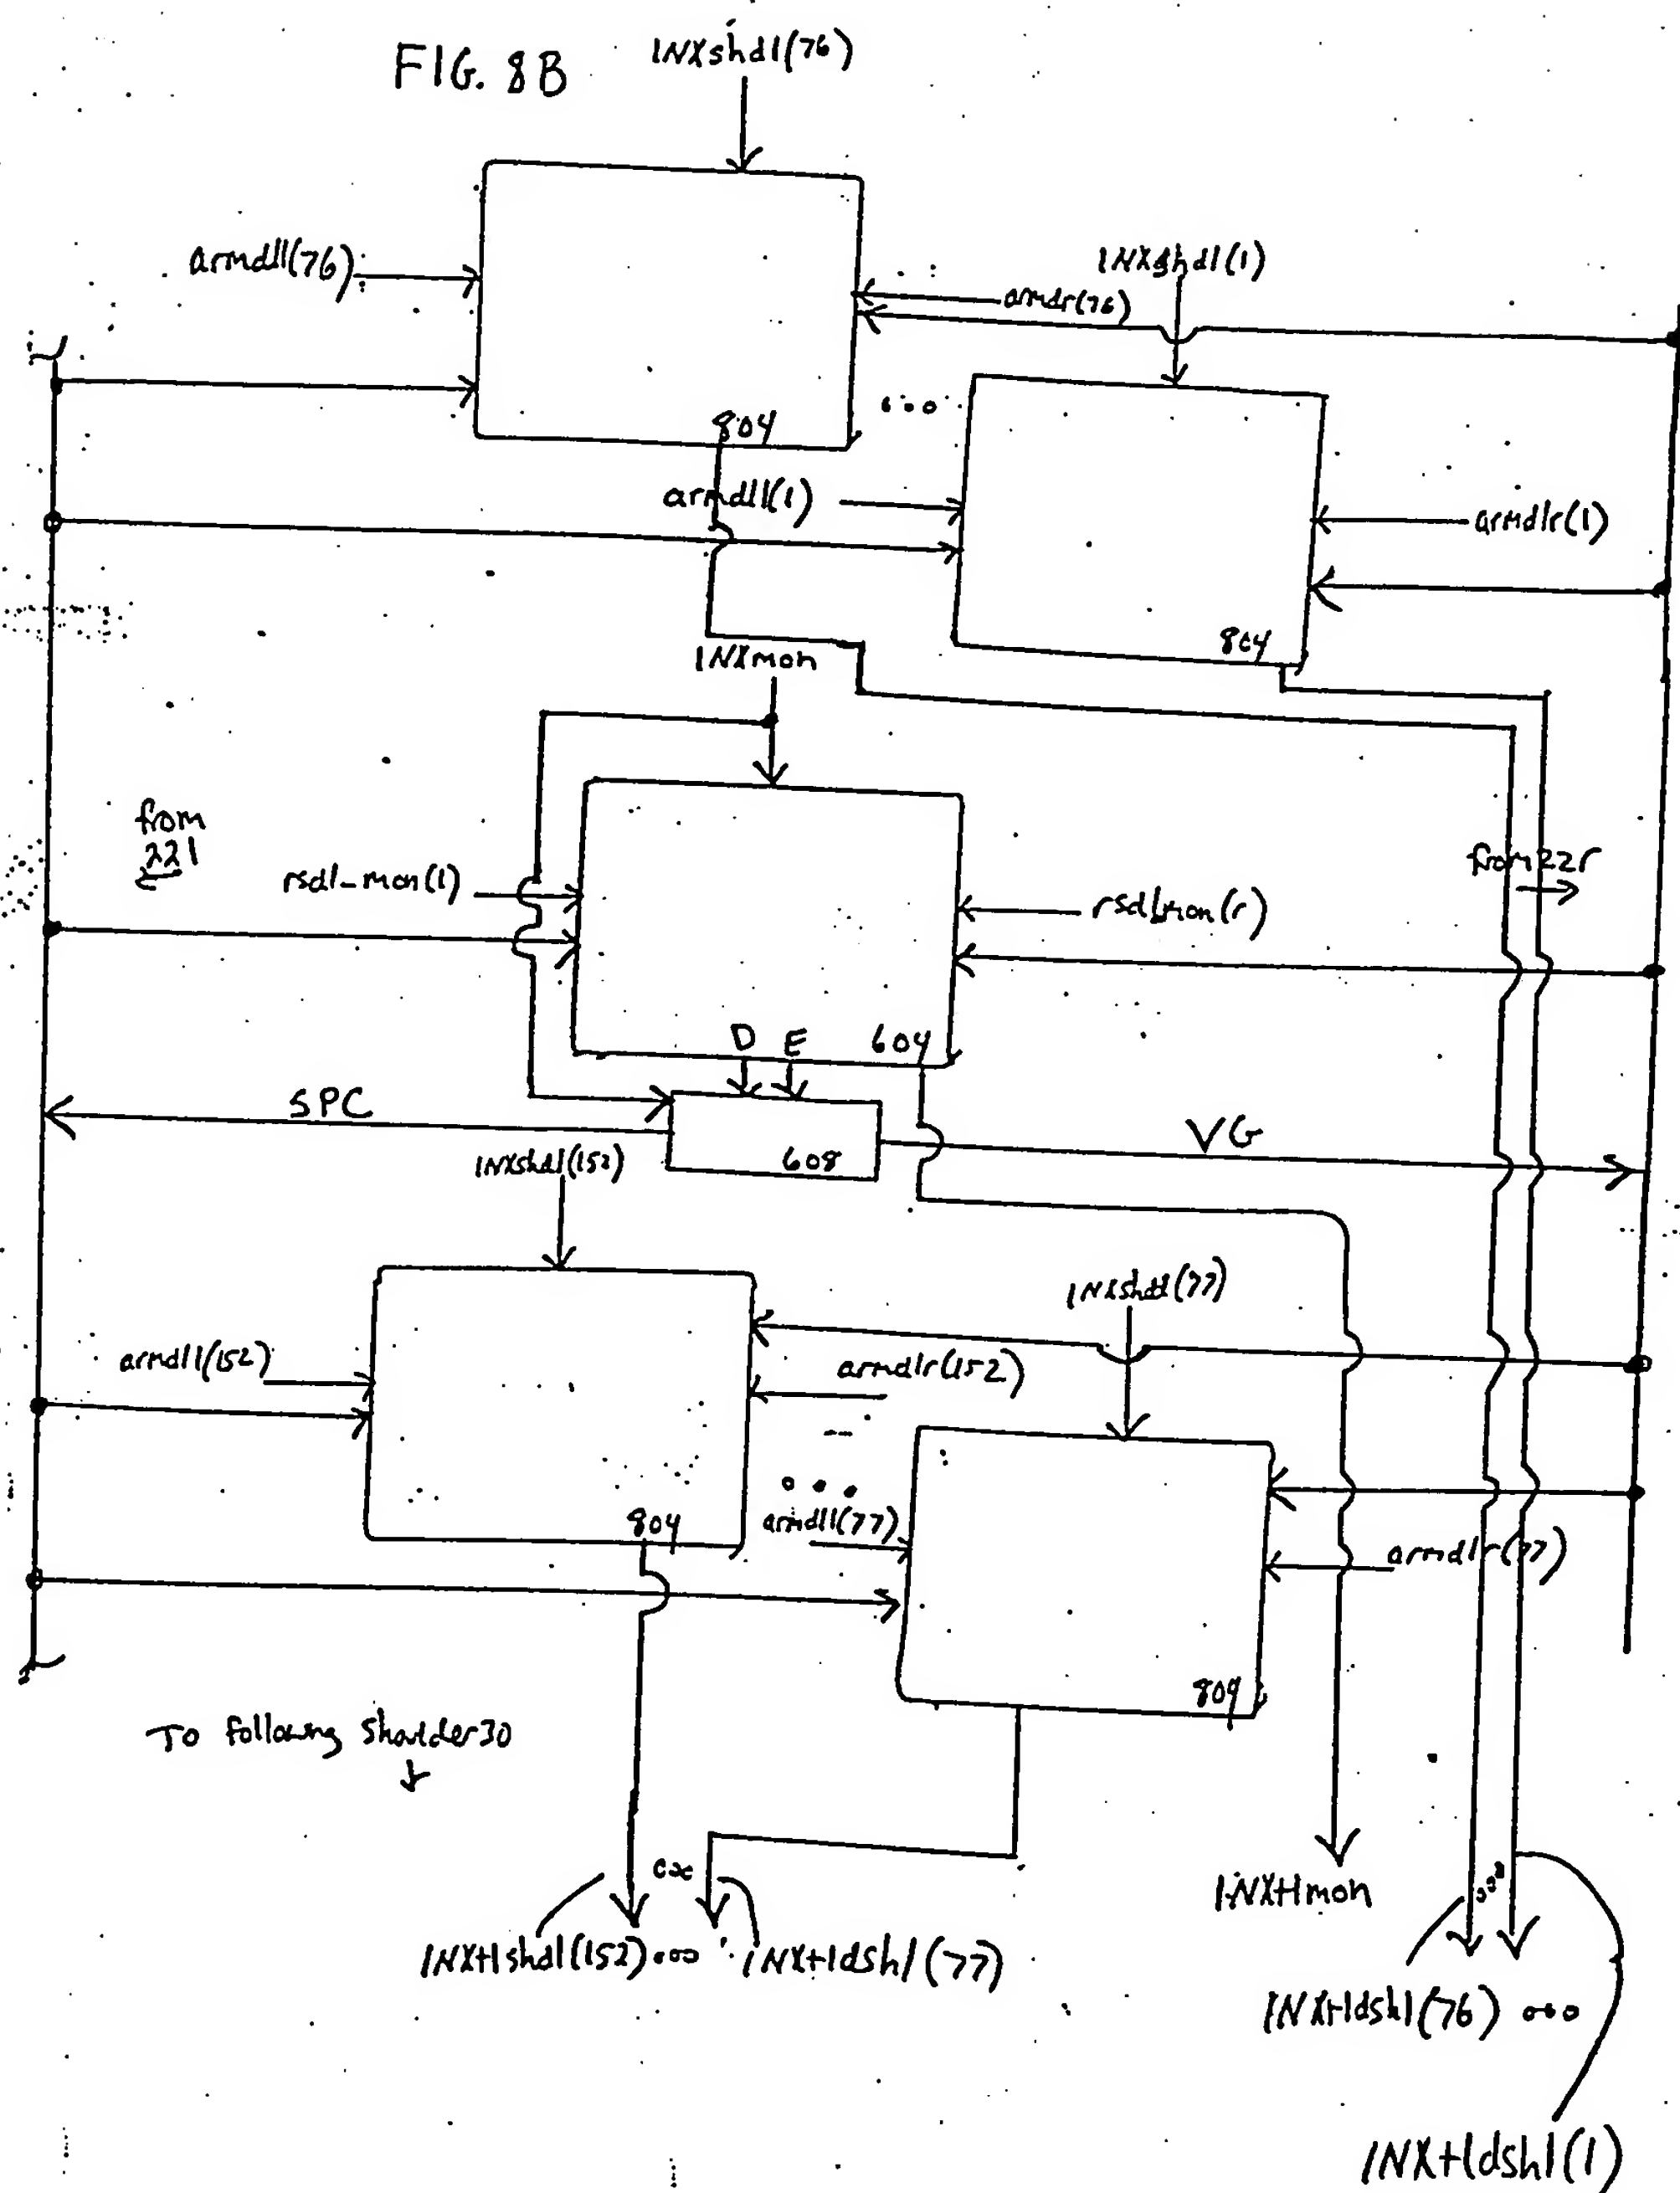 FIG. 8B
INXshdl(76)
armdll(76)
INXshdl(1)
amdr(76)
804
armdll(1)
armdlr(1)
804
INXmon
from
221
rsdl-mon(1)
from 22r
rsdlmon(r)
D E 604
SPC
VG
608
INXshdl(152)
INXshdl(77)
armdll(152)
armdlr(152)
804
armdll(77)
armdlr(77)
804
To following shoulder 30
INX+1mon
INX+1shdl(152)... INX+1dshl(77)
INX+1dshl(76) ...
INX+1dshl(1)